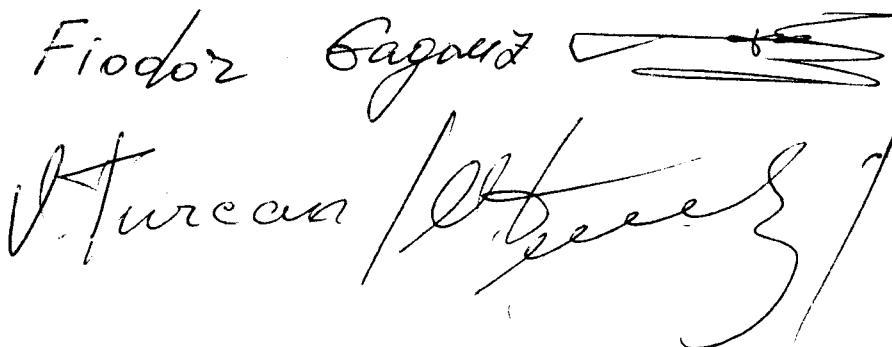 Fiodor Gagauz
V. Turcan